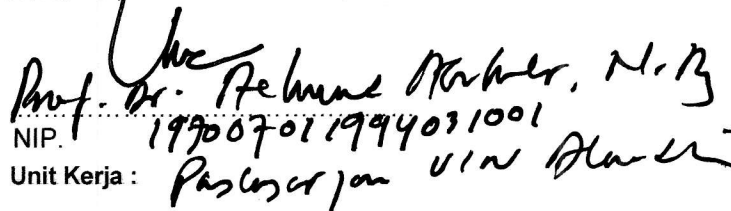 Prof. Dr. M.Ag
NIP. 197007011994031001
Unit Kerja : Pascasarjana UIN Alauddin